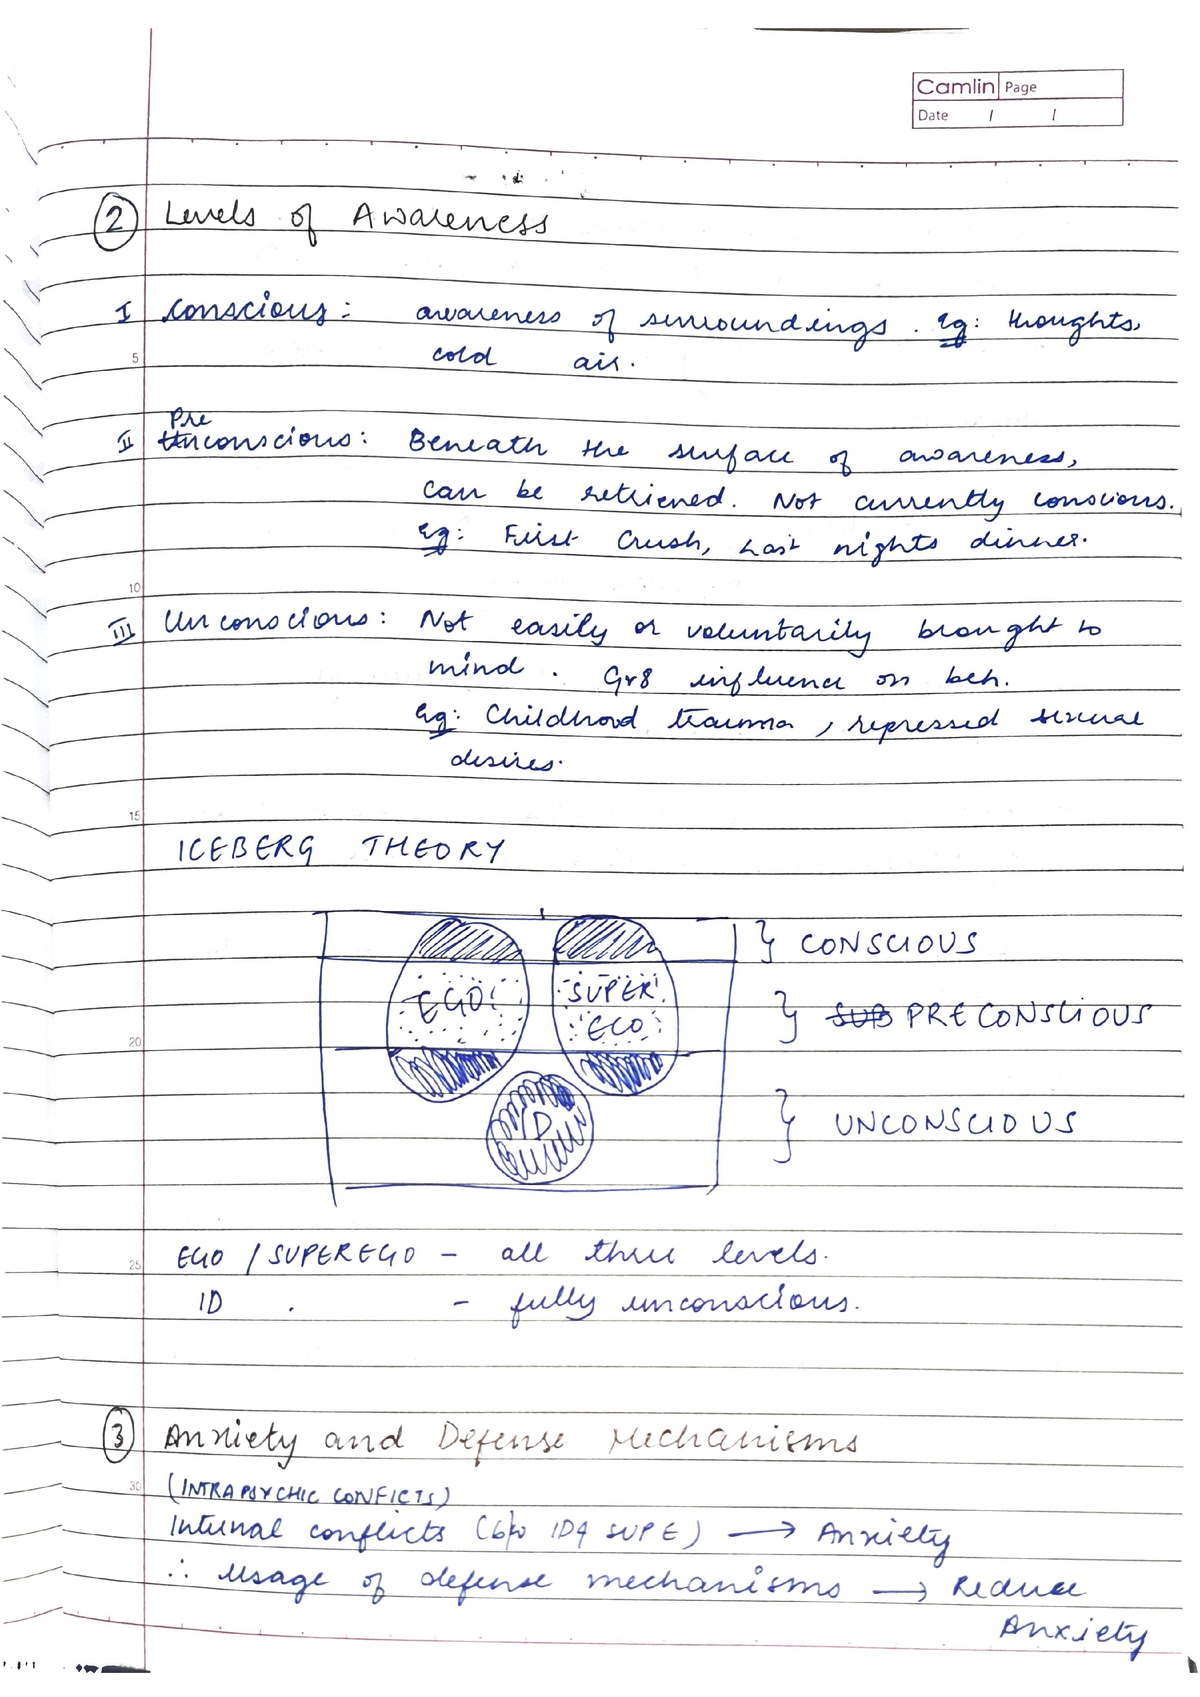 Camlin Page
Date / /
② Levels of Awareness
I Conscious: awareness of surroundings. Eg: thoughts,
5 cold air.
Pre
II Unconscious: Beneath the surface of awareness,
can be retrieved. Not currently conscious.
Eg: First Crush, Last nights dinner.
10
III Unconscious: Not easily or voluntarily brought to
mind. Gr8 influence on beh.
Eg: Childhood trauma, repressed sexual
desires.
15
ICEBERG THEORY
} CONSCIOUS
EGO SUPER
EGO
} SUB PRECONSCIOUS
20
ID
} UNCONSCIOUS
EGO / SUPEREGO - all three levels.
25
ID - fully unconscious.
③ Anxiety and Defense Mechanisms
30 (INTRAPSYCHIC CONFICTS)
Internal conflicts (b/w ID & SUPE) → Anxiety
∴ Usage of defense mechanisms → Reduce
Anxiety